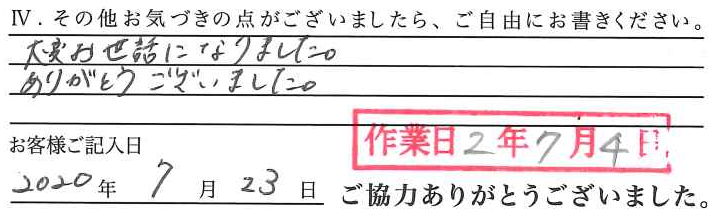 Ⅳ．その他お気づきの点がございましたら、ご自由にお書きください。
大変お世話になりました。
ありがとうございました。
お客様ご記入日
作業日2年7月4日
2020年 7月 23日 ご協力ありがとうございました。